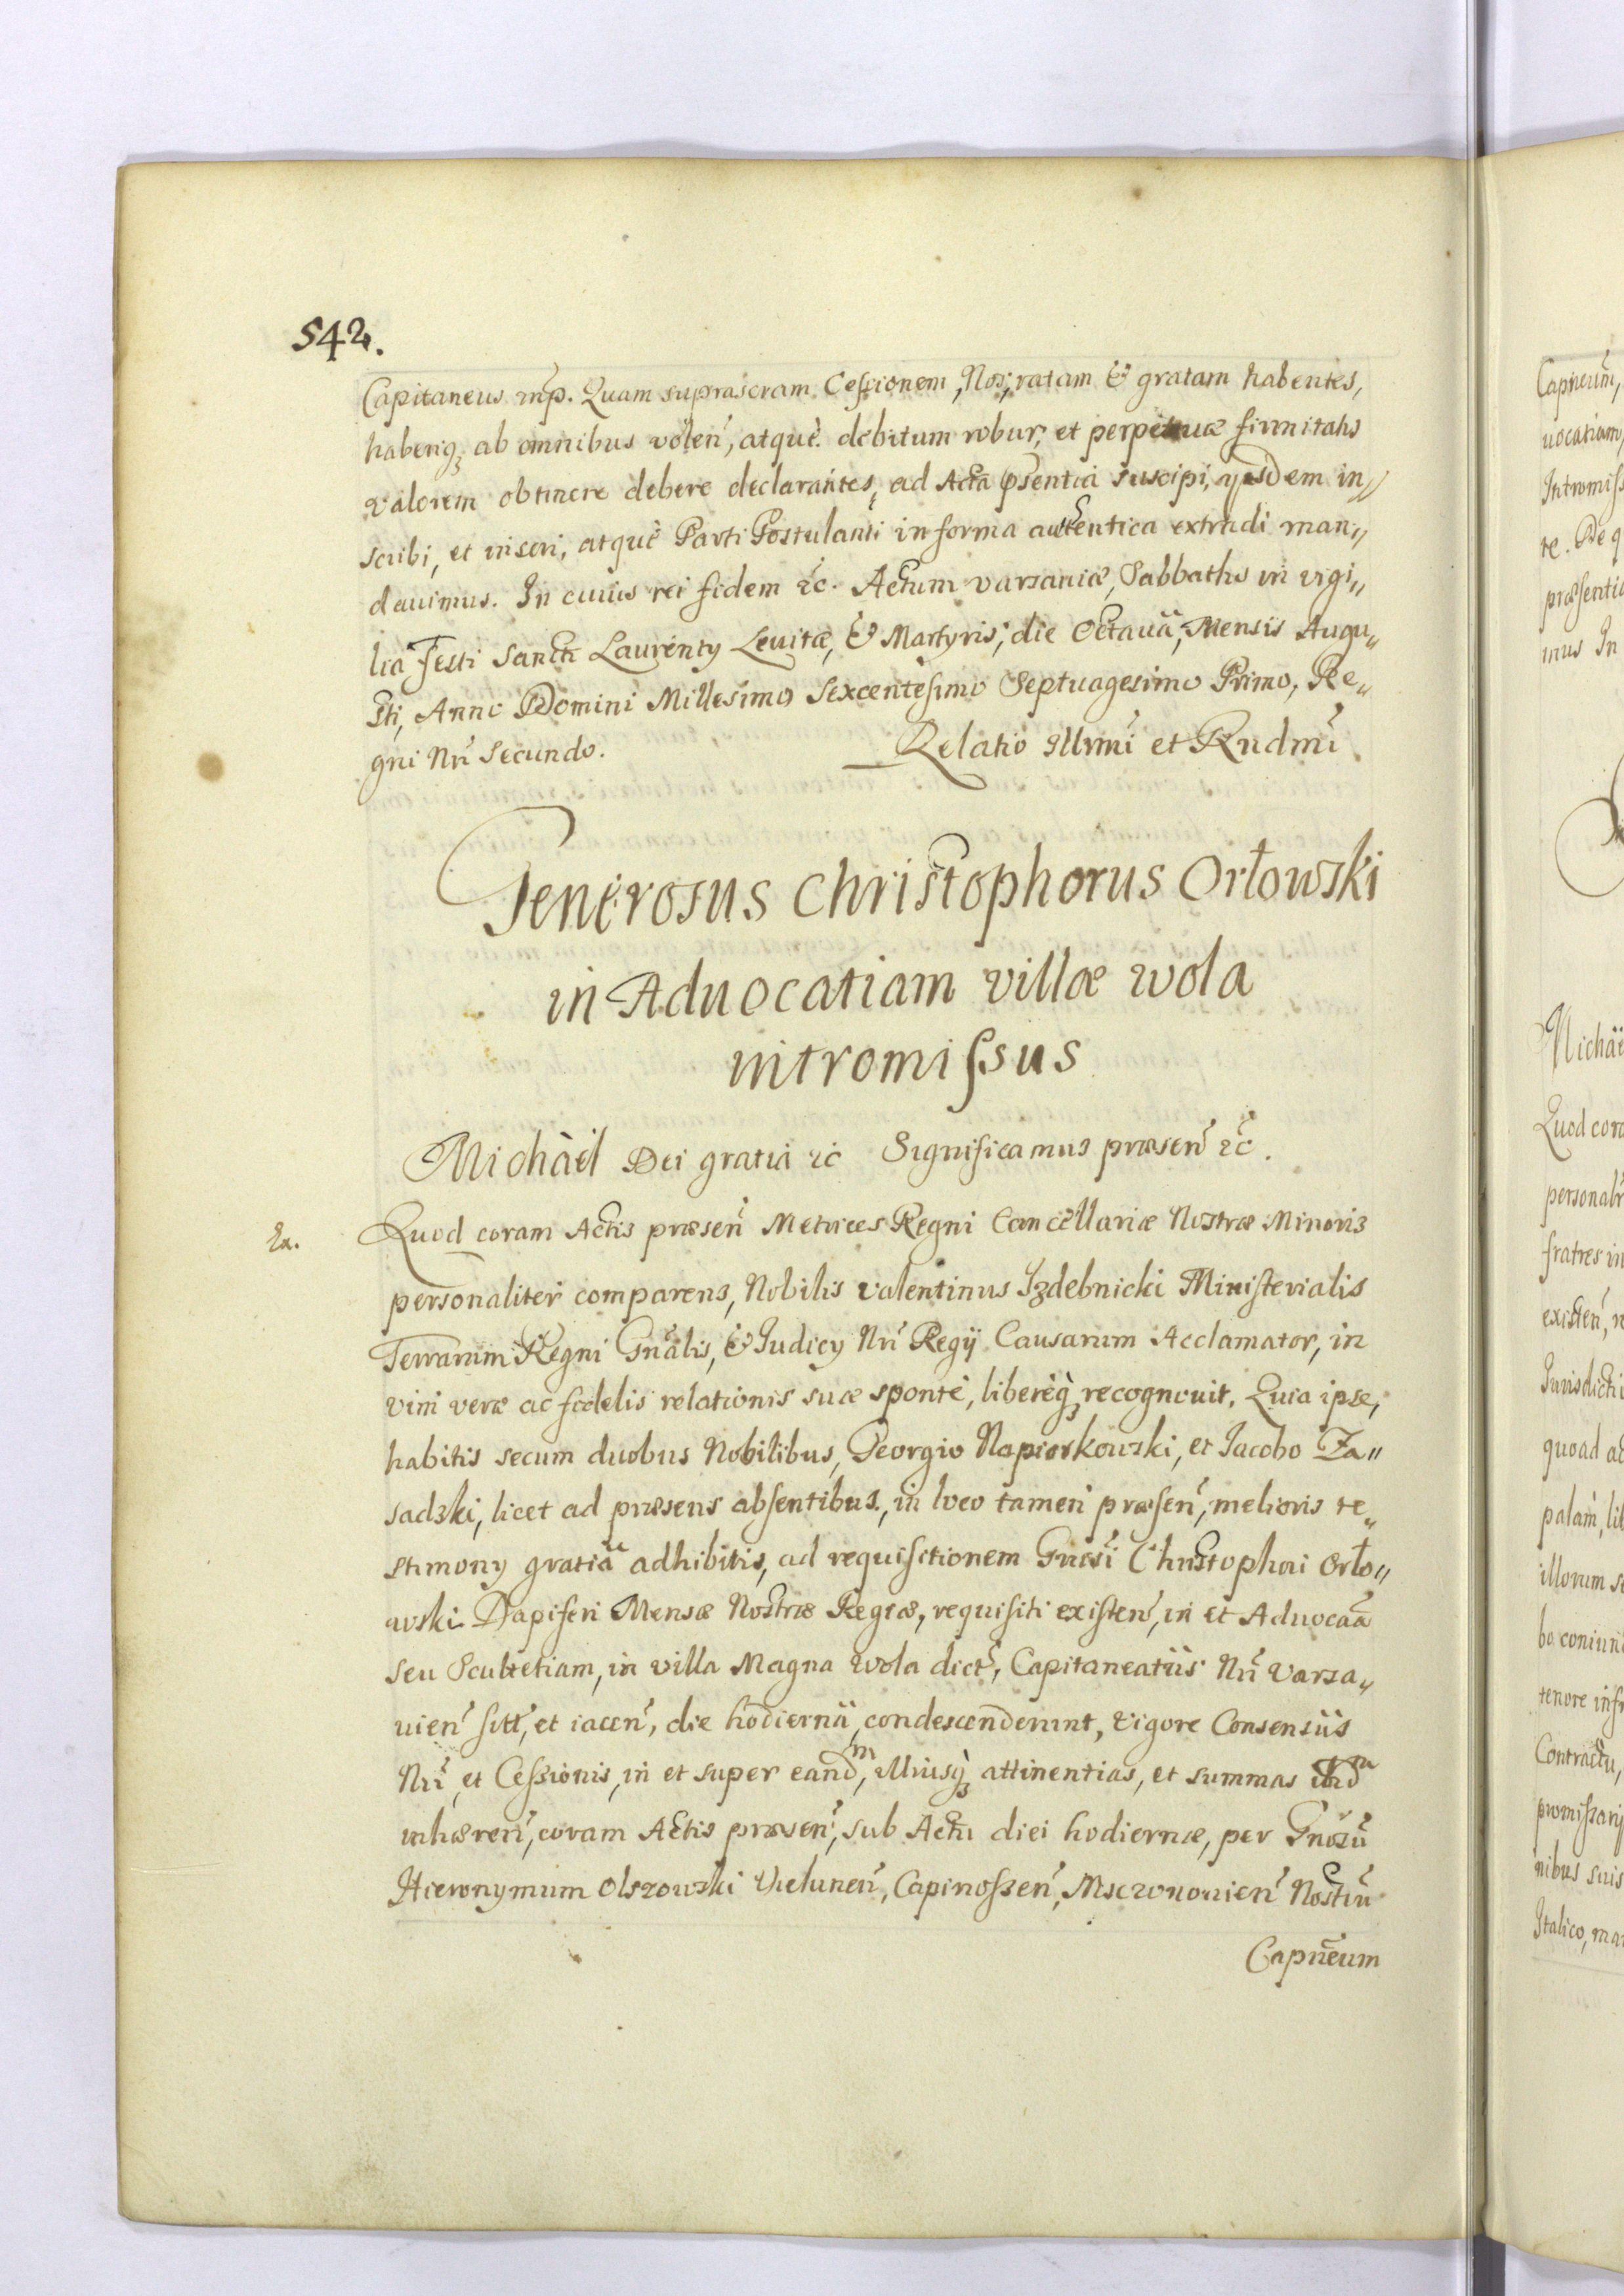 542.
Capitaneus mp. Quam suprascram Cessionem, Nos, ratam & gratam habentes,
haberiq; ab omnibus volen, atque debitum robur, et perpetuæ firmitatis
valorem obtinere debere declarantes, ad Acta psentia suscipi, ysdem in„
scribi, et inseri, atque Parti Postulanti in forma autentica extradi man„
dauimus. In cuius rei fidem &c. Actum varsauiæ, Sabbatho in vigi„
lia Festi Sancti Laurenty Leuitæ, & Martyris, die Octauâ, Mensis Augu„
sti, Anno Domini Millesimo Sexcentesimo Septuagesimo Primo, Re„
gni Nri Secundo. Relatio Illrmi et Rndmi
Generosus Christophorus Orłowski
in Aduocatiam villæ wola
intromissus
Michaël Dei gratia &c Significamus præsen &c.
Ex. Quod coram Actis præsen Metrices Regni Cancellariæ Nostræ Minoris
personaliter comparens, Nobilis valentinus Izdebnicki Ministerialis
Terrarum Regni Gnalis, & Iudicy Nri Regij Causarum Acclamator, in
vim veræ ac fidelis relationis suæ sponte, libereq; recognouit. Quia ipse,
habitis secum duobus Nobilibus, Georgio Napiorkowski, et Iacobo Za„
sadzki, licet ad præsens absentibus, in loco tamen præsen, melioris te„
stimony gratiâ adhibitis, ad requisitionem Gnosi Christophori Orło„
wski Dapiferi Mensæ Nostræ Regiæ, requisiti existen, in et Aduocaã
seu Scultetiam, in villa Magna Wola dict, Capitaneatûs Nri Varsa„
uien sitt, et iacen, die hodiernâ, condescenderunt, vigore Consensûs
Nri, et Cessionis, in et super eand^m, illiusq; attinentias, et summas ibid^m
inhæren, coram Actis præsen, sub Actu diei hodiernæ, per Gnosũ
Hieronymum Olszowski Vielunen, Capinossen, Msczonouien Nostrũ
Capneum